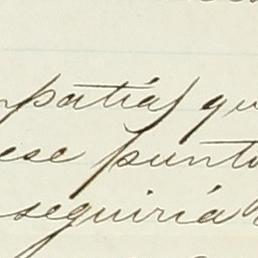 mpatías qu
ese punto
seguiría